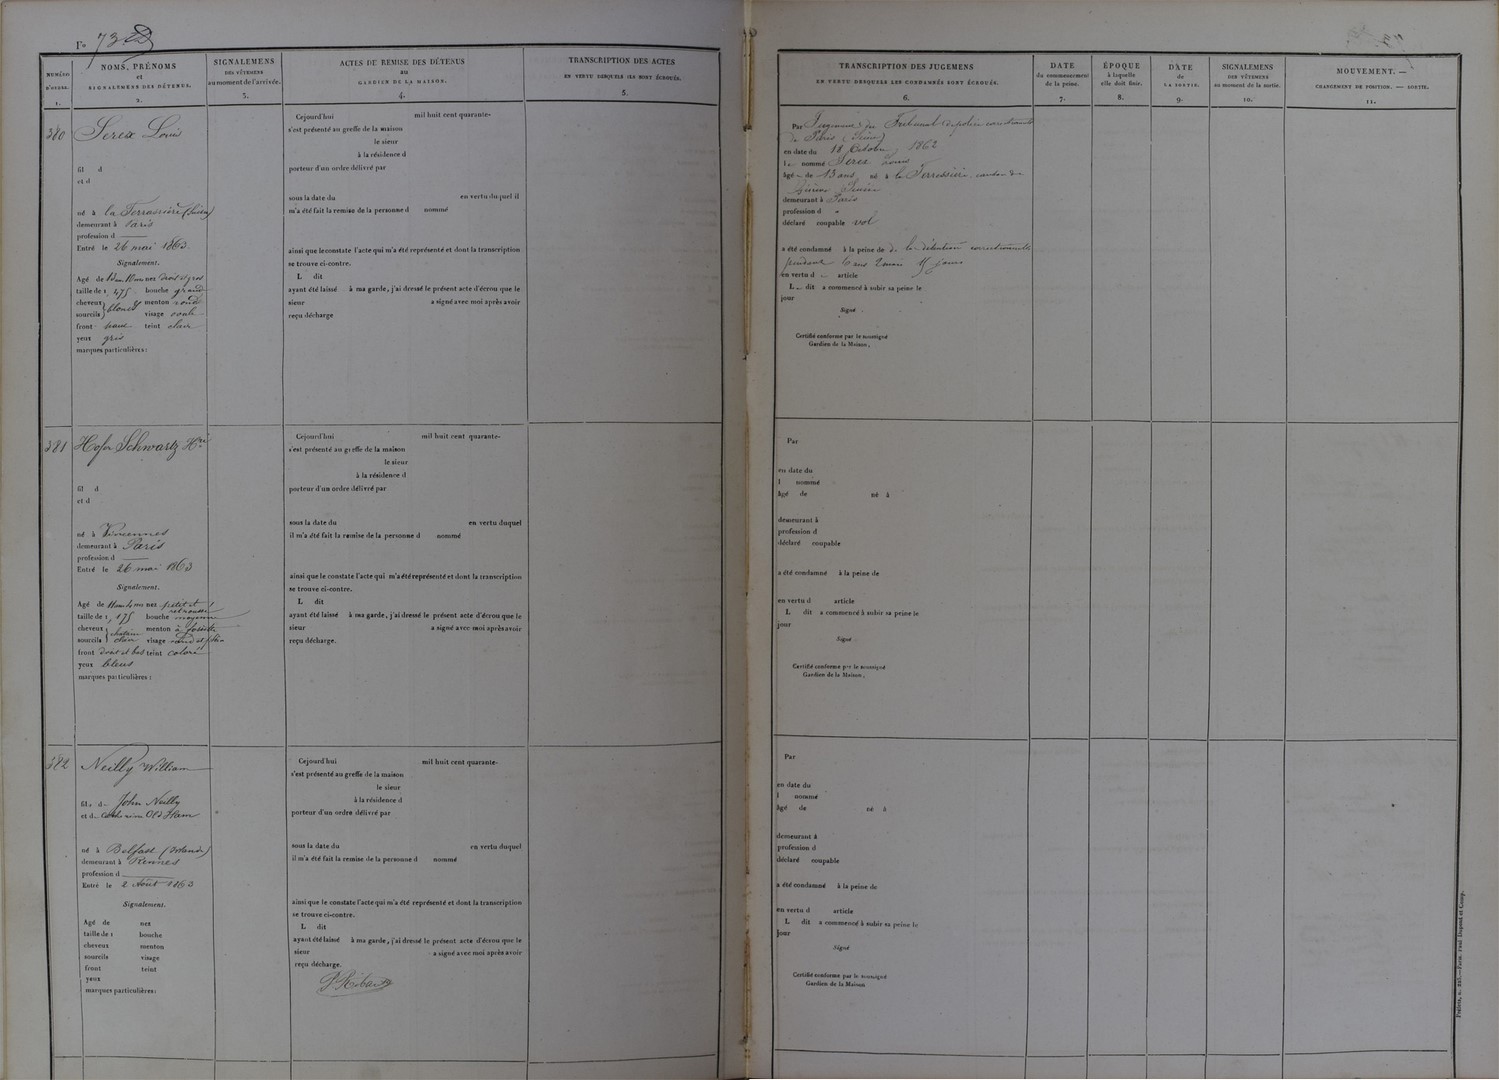 Fo 73
NUMÉRO D'ORDRE. 1.
NOMS, PRÉNOMS et SIGNALEMENS DES DÉTENUS. 2.
SIGNALEMENS DES VÊTEMENS au moment de l'arrivée. 3.
ACTES DE REMISE DES DÉTENUS au GARDIEN DE LA MAISON. 4.
TRANSCRIPTION DES ACTES EN VERTU DESQUELS ILS SONT ÉCROUÉS. 5.
TRANSCRIPTION DES JUGEMENS EN VERTU DESQUELS LES CONDAMNÉS SONT ÉCROUÉS. 6.
DATE du commencement de la peine. 7.
ÉPOQUE à laquelle elle doit finir. 8.
DATE de LA SORTIE. 9.
SIGNALEMENS DES VÊTEMENS au moment de la sortie. 10.
MOUVEMENT. — CHANGEMENT DE POSITION. — SORTIE. 11.
380
Serex Louis
fil d
et d
né à la Terrassière
demeurant à Paris
profession d
Entré le 26 mai 1863
Signalement.
Agé de nez droit et gros
taille de 1, 475 bouche grande
cheveux } blonds menton rond
sourcils } visage ovale
front haut teint clair
yeux gris
marques particulières :
Cejourd'hui mil huit cent quarante-
s'est présenté au greffe de la maison
le sieur
à la résidence d
porteur d'un ordre délivré par
sous la date du en vertu duquel il
m'a été fait la remise de la personne d nommé
ainsi que le constate l'acte qui m'a été représenté et dont la transcription
se trouve ci-contre.
L dit
ayant été laissé à ma garde, j'ai dressé le présent acte d'écrou que le
sieur a signé avec moi après avoir
reçu décharge
Par Jugement du Tribunal de police correctionnelle
de Paris (Seine)
en date du 18 Octobre 1862
l nommé Serex Louis
âgé de 13 ans né à la Terrassière, canton de
demeurant à Paris
profession d
déclaré coupable vol
a été condamné à la peine de de la détention correctionnelle
pendant 6 ans 2 mois 15 jours
en vertu d article
L dit a commencé à subir sa peine le
jour
Signé
Certifié conforme par le soussigné
Gardien de la Maison,
381
Hofer Schwartz Hri
fil d
et d
né à Vincennes
demeurant à Paris
profession d
Entré le 26 mai 1863
Signalement.
Agé de nez petit et retroussé
taille de 1, 175 bouche moyenne
cheveux } chatain menton à fossette
sourcils } clair visage rond et plein
front droit et bas teint coloré
yeux bleus
marques particulières :
Cejourd'hui mil huit cent quarante-
s'est présenté au greffe de la maison
le sieur
à la résidence d
porteur d'un ordre délivré par
sous la date du en vertu duquel
il m'a été fait la remise de la personne d nommé
ainsi que le constate l'acte qui m'a été représenté et dont la transcription
se trouve ci-contre.
L dit
ayant été laissé à ma garde, j'ai dressé le présent acte d'écrou que le
sieur a signé avec moi après avoir
reçu décharge.
Par
en date du
l nommé
âgé de né à
demeurant à
profession d
déclaré coupable
a été condamné à la peine de
en vertu d article
L dit a commencé à subir sa peine le
jour
Signé
Certifié conforme par le soussigné
Gardien de la Maison,
382
Neilly William
fils de John Neilly
et de Catherine Old Ham
né à Belfast (Irlande)
demeurant à Rennes
profession d
Entré le 2 Août 1863
Signalement.
Agé de nez
taille de 1 bouche
cheveux menton
sourcils visage
front teint
yeux
marques particulières :
Cejourd'hui mil huit cent quarante-
s'est présenté au greffe de la maison
le sieur
à la résidence d
porteur d'un ordre délivré par
sous la date du en vertu duquel
il m'a été fait la remise de la personne d nommé
ainsi que le constate l'acte qui m'a été représenté et dont la transcription
se trouve ci-contre.
L dit
ayant été laissé à ma garde, j'ai dressé le présent acte d'écrou que le
sieur a signé avec moi après avoir
reçu décharge.
Par
en date du
l nommé
âgé de né à
demeurant à
profession d
déclaré coupable
a été condamné à la peine de
en vertu d article
L dit a commencé à subir sa peine le
jour
Signé
Certifié conforme par le soussigné
Gardien de la Maison